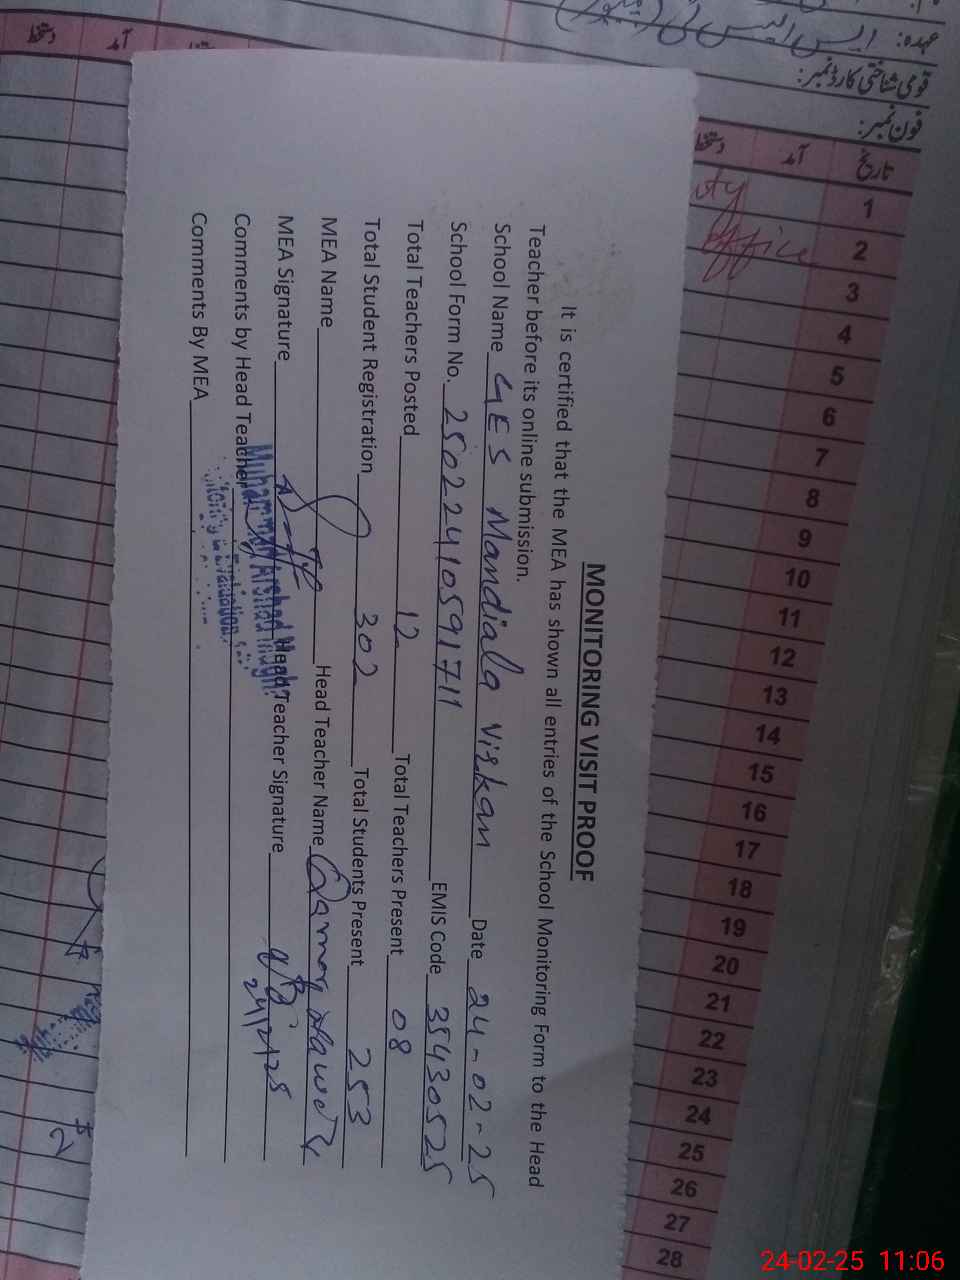 عہدہ:
قومی شناختی کارڈ نمبر:
فون نمبر:
تاریخ آمد دستخط
1
2 office
3
4
5
6
7
8
9
10
11
12
13
14
15
16
17
18
19
20
21
22
23
24
25
26
27
28
MONITORING VISIT PROOF
It is certified that the MEA has shown all entries of the School Monitoring Form to the Head
Teacher before its online submission.
School Name GES Mandiala Virkan Date 24-02-25
School Form No. 25022410591711 EMIS Code 35430525
Total Teachers Posted 12 Total Teachers Present 08
Total Student Registration 302 Total Students Present 253
MEA Name Head Teacher Name Qamar
MEA Signature Head Teacher Signature 24/2/25
Muhammad Arshad
Comments by Head Teacher
Monitoring & Evaluation
Comments By MEA
24-02-25 11:06